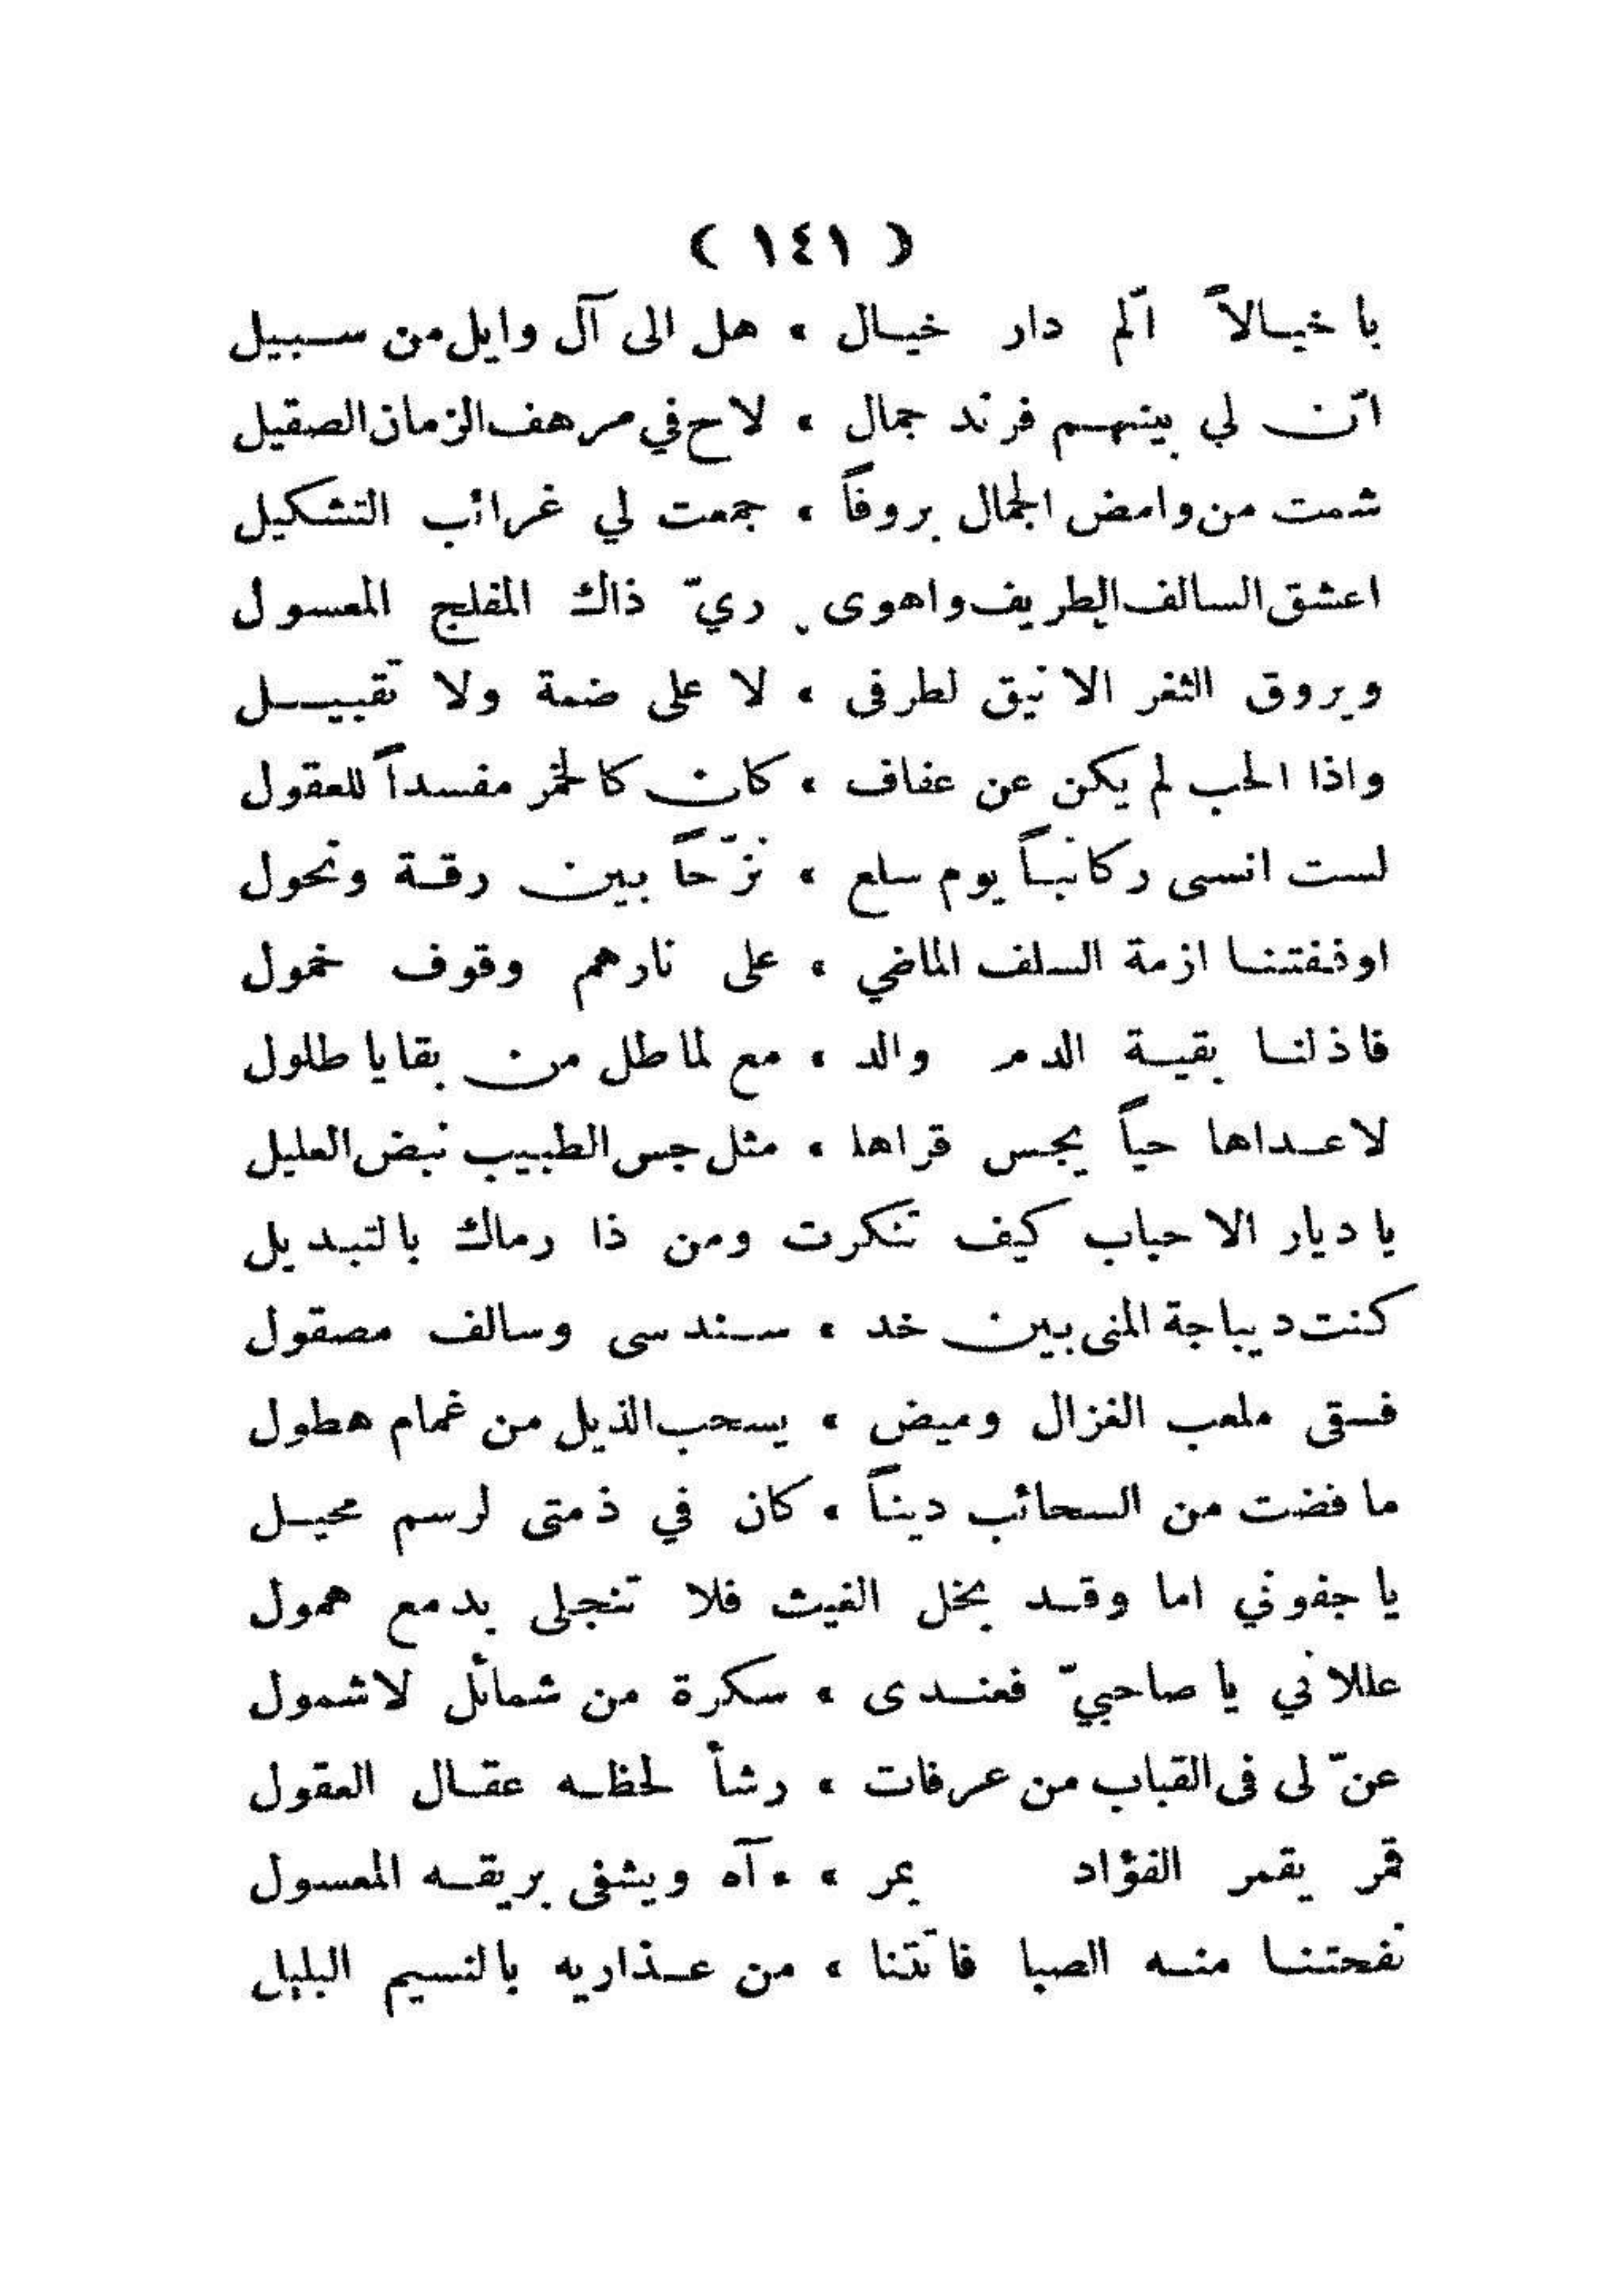 ( ١٤١ )
يا خيالاً المّ دار خيال ، هل الى آل وايل من سبيل
انّ لي بينهم فرند جمال ، لاح في مرهف الزمان الصقيل
شمت من وامض الجمال بروقاً ، جمعت لي غرائب التشكيل
اعشق السالف الطريف واهوى ، ريّ ذاك المفلج المعسول
ويروق الثغر الانيق لطرفى ، لا على ضمة ولا تقبيل
واذا الحب لم يكن عن عفاف ، كان كالخمر مفسداً للعقول
لست انسى ركائباً يوم سلع ، نزّحاً بين رقة ونحول
اوقفتنا ازمة السلف الماضي ، على نارهم وقوف خمول
فاذلنا بقية الدمر والد ، مع لما طل من بقايا طلول
لاعداها حياً يجس قراها ، مثل جس الطبيب نبض العليل
يا ديار الاحباب كيف تنكرت ومن ذا رماك بالتبديل
كنت ديباجة المنى بين خد ، سندسى وسالف مصقول
فسقى ملعب الغزال وميض ، يسحب الذيل من غمام هطول
ما قضت من السحائب ديناً ، كان في ذمتى لرسم محيل
يا جفوني اما وقد بخل الغيث فلا تنجلى بدمع همول
عللاني يا صاحبيّ فعندى ، سكرة من شمائل لاشمول
عنّ لى فى القباب من عرفات ، رشأ لحظه عقال العقول
قمر يقمر الفؤاد بمر ، ءآه ويشفى بريقه المعسول
نفحتنا منه الصبا فاتتنا ، من عذاريه بالنسيم البليل